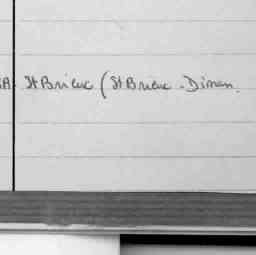 A. St Brieuc (St Brieuc - Dinan.